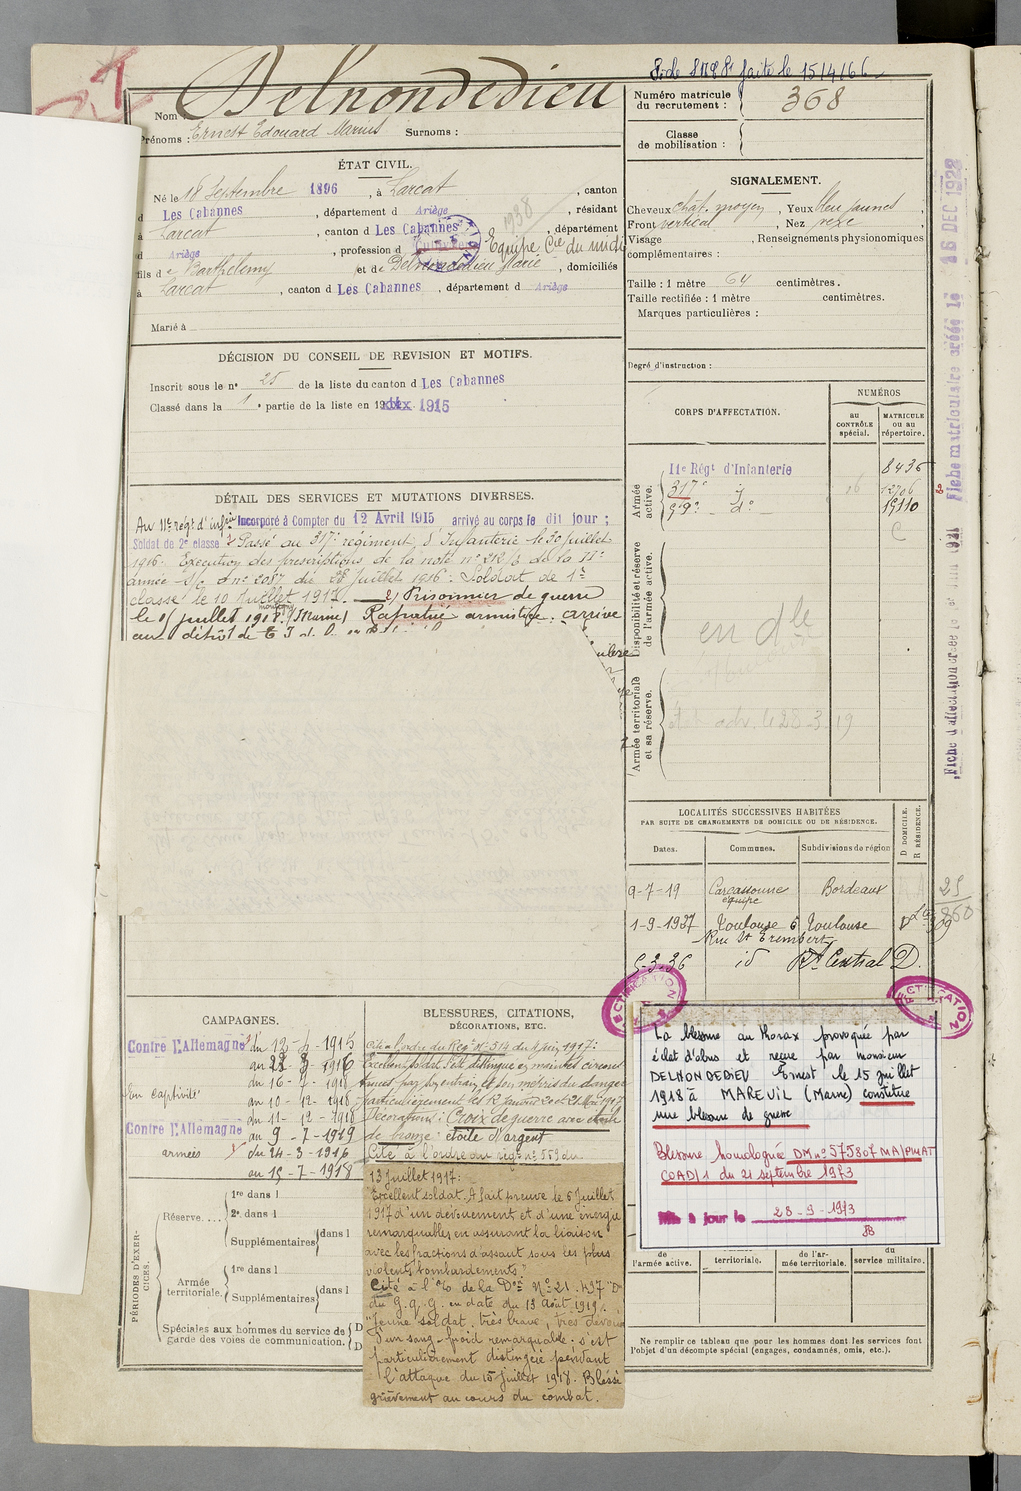 Pde SMR P. faite le 15/4/66
Nom : Delnondedieu
Prénoms : Ernest Edouard Marius Surnoms :
Numéro matricule du recrutement : 368
Classe de mobilisation :
ÉTAT CIVIL.
Né le 18 Septembre 1896, à Larcat, canton
d Les Cabannes, département d Ariège, résidant
à Larcat, canton d Les Cabannes, département
d Ariège, profession d Equipe Cie du midi
1938
fils de Barthélemy et de Delnondedieu Marie, domiciliés
à Larcat, canton d Les Cabannes, département d Ariège
Marié à
SIGNALEMENT.
Cheveux chat. moyen, Yeux bleu jaunes,
Front vertical, Nez vexe,
Visage , Renseignements physionomiques
complémentaires :
Taille : 1 mètre 64 centimètres.
Taille rectifiée : 1 mètre centimètres.
Marques particulières :
Degré d'instruction :
DÉCISION DU CONSEIL DE REVISION ET MOTIFS.
Inscrit sous le n° 25 de la liste du canton d Les Cabannes
Classé dans la 1e partie de la liste en 1915
DÉTAIL DES SERVICES ET MUTATIONS DIVERSES.
Au 11e régt d'infie Incorporé à Compter du 12 Avril 1915 arrivé au corps le dit jour ;
Soldat de 2e classe Passé au 317e régiment d'Infanterie le 30 juillet
1916. Exécution des prescriptions de la note n° 212/3 de la IIe
armée s/c n° 2087 du 28 Juillet 1916. Soldat de 1e
classe le 10 Juillet 1917. Prisonnier de guerre
le 15 juillet 1918 (Marne) Rapatrié armistice. arrivé
au dépôt de
CORPS D'AFFECTATION.
NUMÉROS
au CONTRÔLE spécial.
MATRICULE ou au répertoire.
Armée active.
11e Régt d'Infanterie 8436
317e d° 12706
59e d° 15110
Disponibilité et réserve de l'armée active.
en dle
Armée territoriale et sa réserve.
LOCALITÉS SUCCESSIVES HABITÉES
PAR SUITE DE CHANGEMENTS DE DOMICILE OU DE RÉSIDENCE.
Dates. Communes. Subdivisions de région
D DOMICILE.
R RÉSIDENCE.
9-7-19 Carcassonne équipe Bordeaux
1-9-1927 Toulouse 6 Rue St Erembert Toulouse
5-3-36 id Rt Central D.
Fiche matriculaire créée le 16 DEC 1928
CAMPAGNES.
Contre l'Allemagne du 12-4-1915
au 22-3-1916
du 16-7-1918
En captivité
au 10-12-1918
du 11-12-1918
Contre l'Allemagne
au 9-7-1919
armées du 24-3-1916
au 15-7-1918
BLESSURES, CITATIONS,
DÉCORATIONS, ETC.
Cité à l'ordre du Régt N° 514 du 4 juin 1917 :
Excellent soldat s'est distingué en maintes circons
tances par son entrain et son mépris du danger
particulièrement les 12 Janvier 20 et 21 Mai 1917
Décoration : Croix de guerre avec étoile
de bronze : étoile d'argent
Cité à l'ordre du régt n° 559 du
13 Juillet 1917 :
Excellent soldat. A fait preuve le 5 juillet
1917 d'un dévouement et d'une énergie
remarquables en assurant la liaison
avec les fractions d'assaut sous les plus
violents bombardements."
Cité à l'O/ de la Don N° 21.437 "D"
du G.Q.G. en date du 13 Août 1919.
"Jeune soldat, très brave, très dévoué
d'un sang-froid remarquable. s'est
particulièrement distingué pendant
l'attaque du 15 juillet 1918. Blessé
grièvement au cours du combat.
RECTIFICATION
RECTIFICATION
La blessure au thorax provoquée par
éclat d'obus et reçue par monsieur
DELNONDEDIEU Ernest le 15 juillet
1918 à MAREUIL (Marne) constitue
une blessure de guerre
Blessure homologuée DM n° 575807 MA/PMAT
COAD/1 du 21 septembre 1973
Mis à jour le 28-9-1973
PÉRIODES D'EXERCICES.
Réserve....
1re dans l
2e dans l
Supplémentaires dans l
Armée territoriale.
1re dans l
Supplémentaires dans l
Spéciales aux hommes du service de garde des voies de communication.
de l'armée active.
territoriale.
de l'armée territoriale.
du service militaire.
Ne remplir ce tableau que pour les hommes dont les services font
l'objet d'un décompte spécial (engagés, condamnés, omis, etc.).